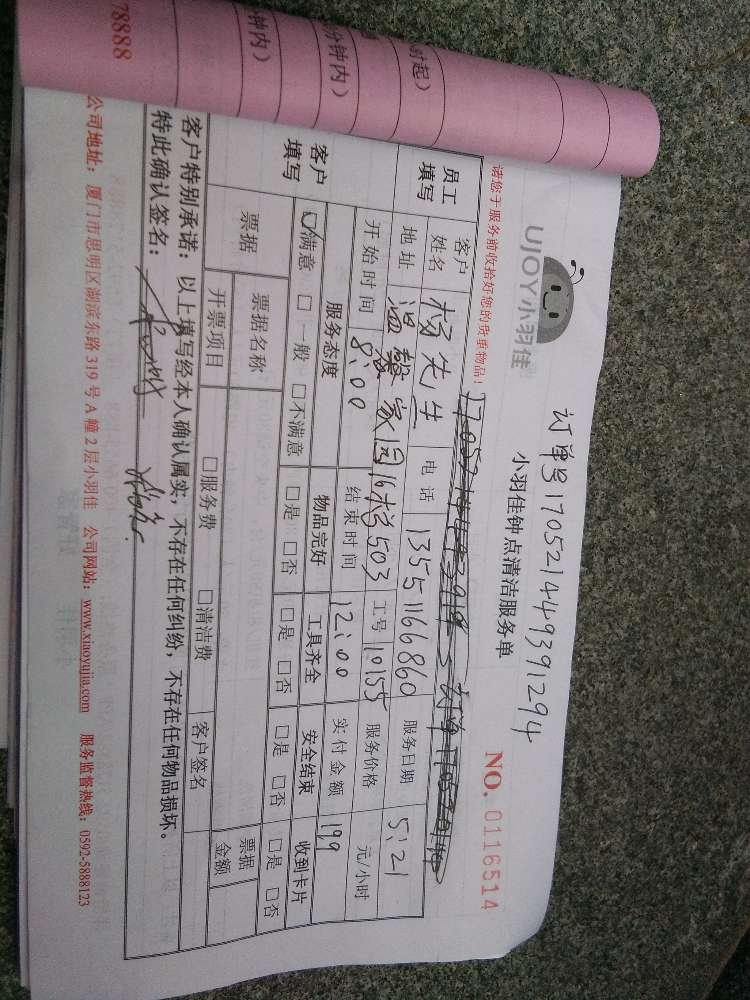 订单号17052144939​1294
UJOY小羽佳
小羽佳钟点清洁服务单
NO. 0116514
请您于服务前收拾好您的贵重物品!
员工填写
客户姓名 杨先生 电话 13551166860 服务日期 5:21
地址 温馨家园16栋503 工号 10155 服务价格 元/小时
开始时间 8:00 结束时间 12:00 实付金额 199
客户填写
服务态度 物品完好 工具齐全 安全结束 收到卡片
☑满意 □一般 □不满意 □是 □否 □是 □否 □是 □否 □是 □否
票据 票据名称 票据金额
开票项目 □服务费 □清洁费 客户签名
客户特别承诺:以上填写经本人确认属实,不存在任何纠纷,不存在任何物品损坏。
特此确认签名:
公司地址:厦门市思明区湖滨东路319号A幢2层小羽佳 公司网站:www.xiaoyujia.com 服务监督热线:0592-5888123
时起)
分钟内)
钟内)
78888